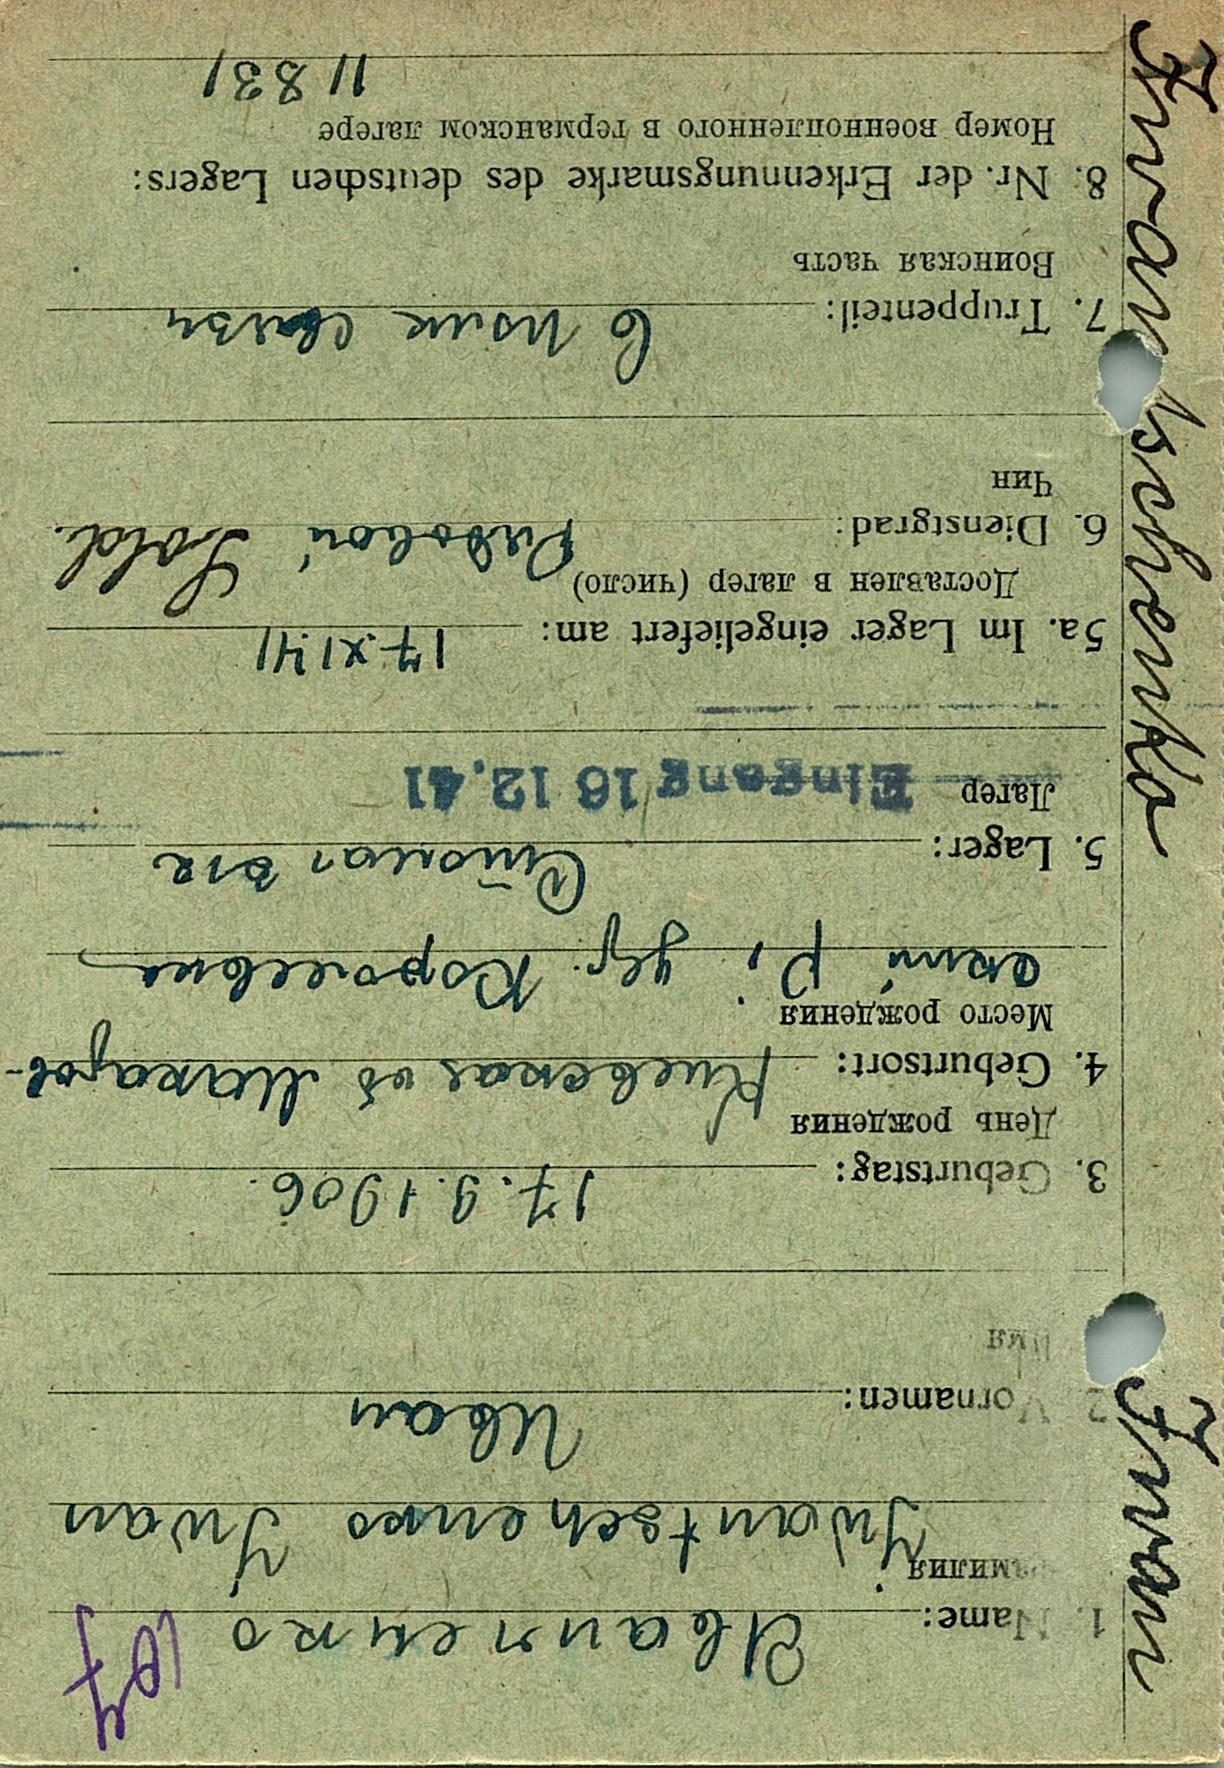 Iwantschenko Iwan
107
1. Name: Иванченко
Фамилия
Iwantschenko Iwan
2. Vornamen: Иван
Имя
3. Geburtstag: 17.9.1906.
День рождения
4. Geburtsort: Киевская об Макаров-
Место рождения
ский р., дер. Королевка
5. Lager:
Лагер Eingang 16 12.41
5a. Im Lager eingeliefert am: 17.XI.41
Доставлен в лагер (число)
6. Dienstgrad: Рядовой Sold.
Чин
7. Truppenteil: 6 полк связи
Воинская часть
8. Nr. der Erkennungsmarke des deutschen Lagers:
Номер военнопленного в германском лагере
11831